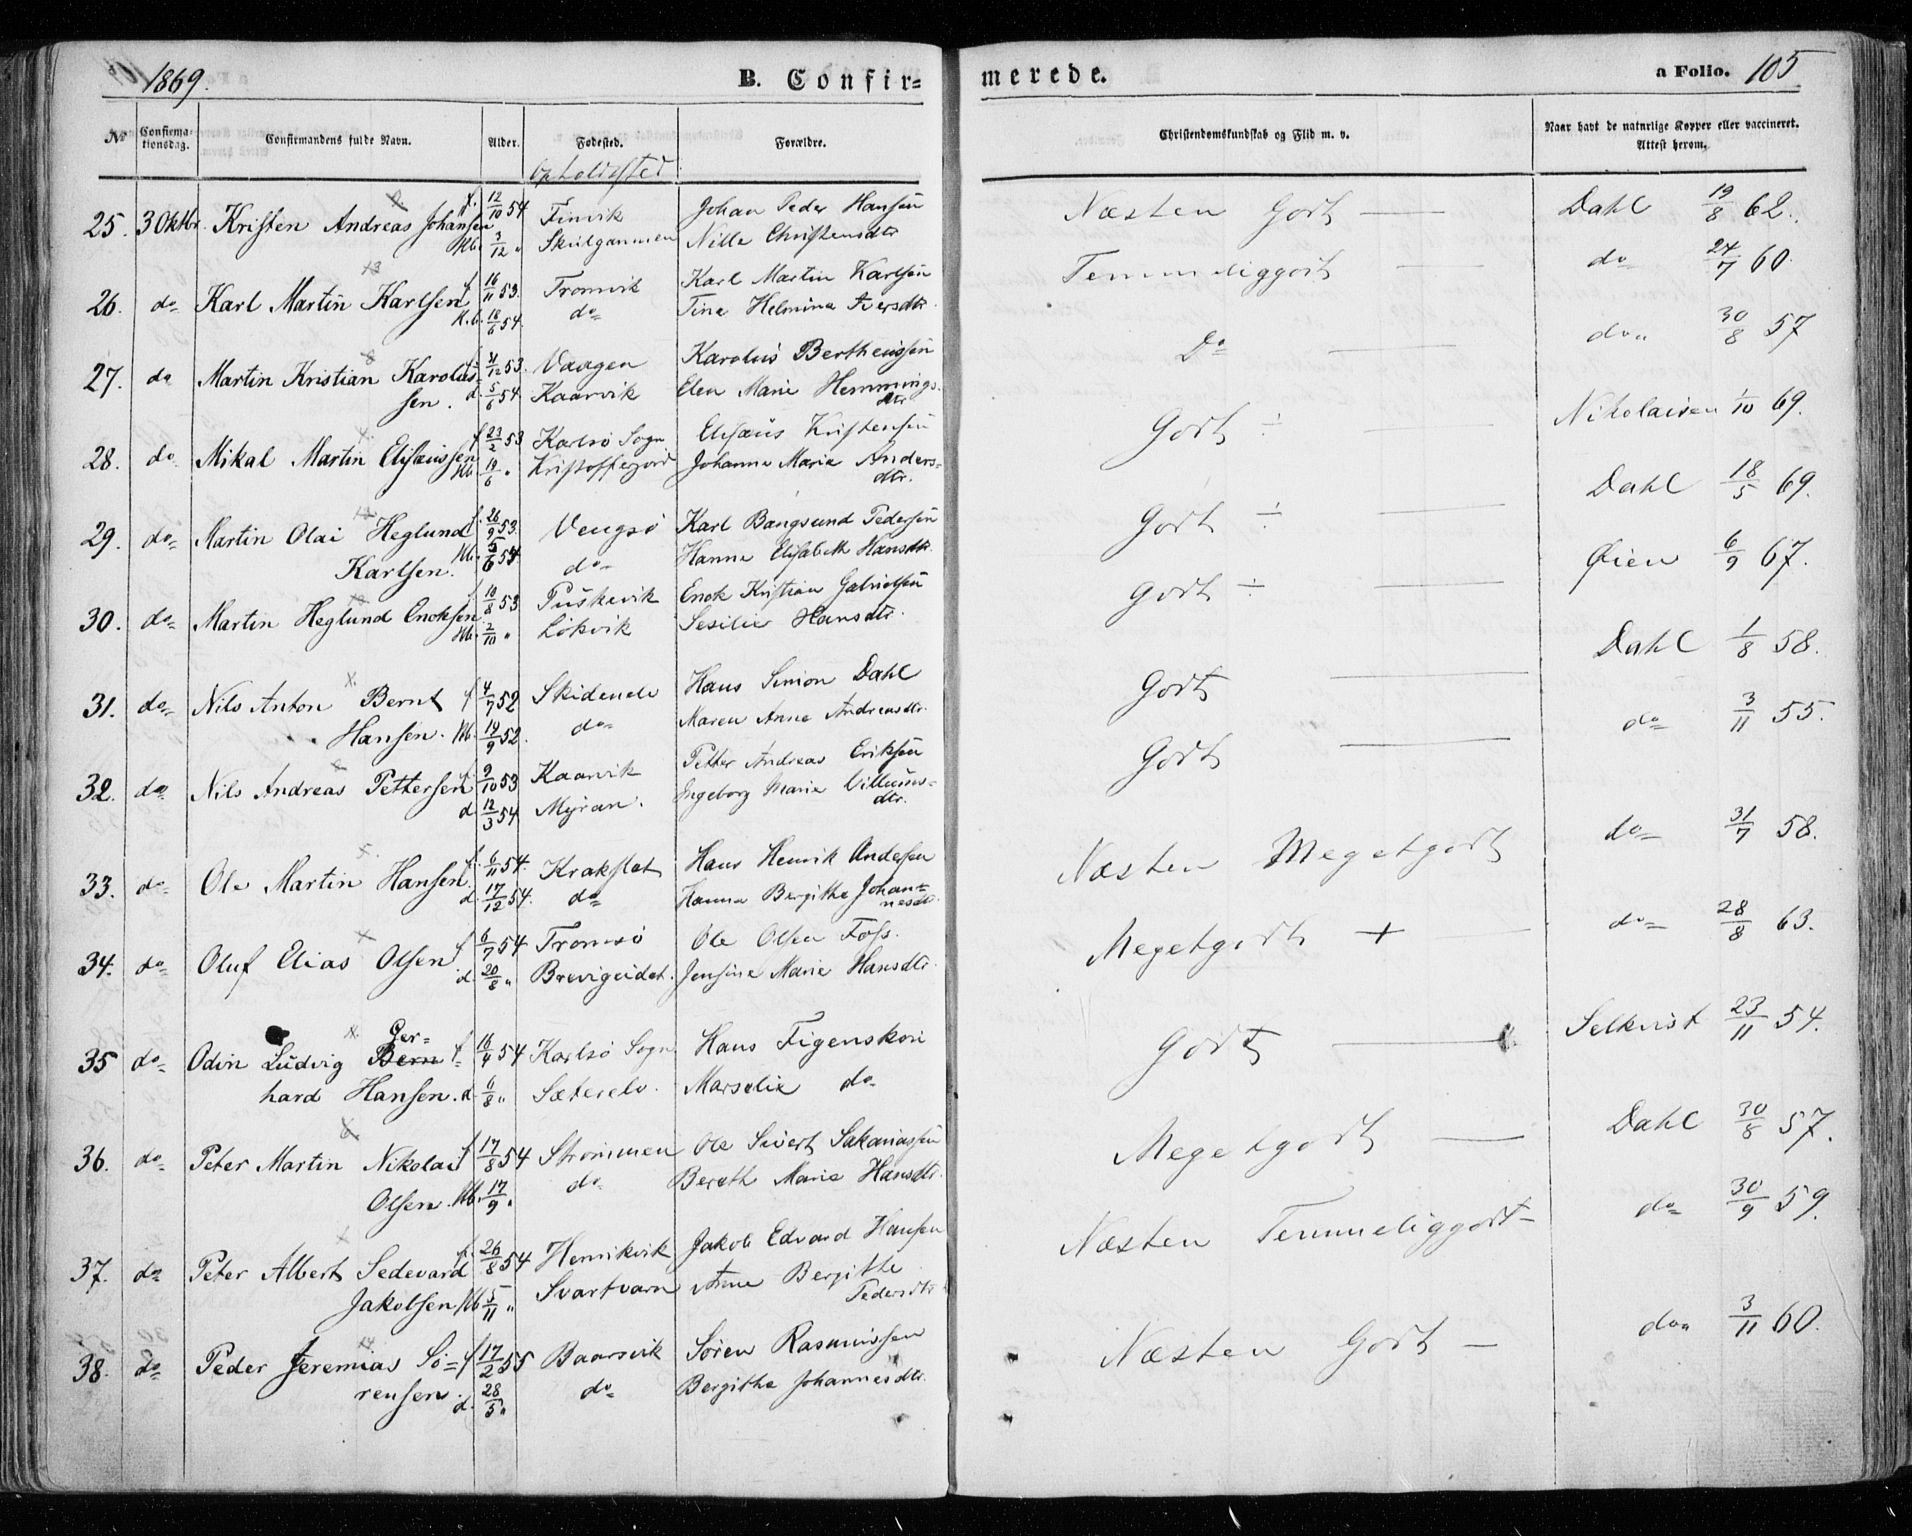 1869.
B. Confir=
merede.
a Folio. 105
No
Confirma-
tionsdag.
Confirmandens fulde Navn.
Alder.
Fødested.
Opholdssted
Forældre.
Christendomskundskab og Flid m. v.
Naar havt de naturlige Kopper eller vaccineret.
Attest herom.
25. 3 Oktbr. Kristen Andreas Johansen f. 12/10 54 Finvik Johan Peder Hansen Næsten Godt — Dahl 19/8 62.
Hb. 3/12 " Skulgammen Nille Christensdtr
26. do Karl Martin Karlsen f. 16/11 53. Tromvik Karl Martin Karlsen Temmeliggodt — do 24/7 60.
H.b. 18/6 54. do Tine Helmina Iversdtr.
27. do Martin Kristian Karolus= f. 4/12 53. Vaagen Karolus Bertheussen Do — do 30/8 57
sen. d. 5/6 54. Kaarvik Elen Marie Hemmings-
dtr
28. do Mikal Martin Elisæussen f. 23/2 53 Karlsø Sogn Elisæus Kristensen Godt ÷ — Nikolaisen 1/10 69.
Hb. 19/6 " Kristofferjord Johanna Maria Anders=
dtr.
29. do Martin Olai Heglund f. 26/9 53. Vengsø Karl Bangsund Pedersen Godt ÷ — Dahl 18/5 69.
Karlsen. Hb. 5/6 54. do Hanna Elisabeth Hansdtr.
30. do Martin Heglund Enoksen f. 10/8 53 Puskevik Enok Kristian Gabrielsen Godt ÷ — Øien 6/9 67.
Hb. 2/10 " Løkvik Sesilie Hansdtr.
31. do Nils Anton Bernt f. 4/7 52 Skidenelv Hans Simon Dahl Godt — Dahl 1/8 58.
Hansen. Hb. 19/9 52. do Maren Anna Andreasdtr.
32. do Nils Andreas Pettersen f. 9/10 53 Kaarvik Petter Andreas Eriksen Godt — do 3/11 55.
d. 12/3 54 Myran. Ingeborg Marie Villums=
dtr.
33. do Ole Martin Hansen f. 6/11 54. Krakslet Hans Henrik Andersen Næsten Megetgodt do 31/7 58.
d. 17/12 54. do Hanna Bergitha Johan=
nesdtr.
34. do Oluf Elias Olsen f. 6/7 54 Tromsø Ole Olsen Foss. Megetgodt + — do 28/8 63.
d. 20/8 " Breivigeidet. Jensine Marie Hansdtr.
Ger-
35 do Odin Ludvig Bern f. 16/4 54 Karlsø Sogn Hans Figenskou Godt — Selkvist 23/11 54.
hard Hansen. d. 6/8 " Sæterelv. Marselie do
36. do Peter Martin Nikolai f. 17/8 54 Strømmen Ole Sivert Sakariassen Megetgodt — Dahl 30/8 57.
Olsen. Hb. 17/9 " do Bereth Marie Hansdtr.
37. do Peter Albert Sedevard f. 26/8 54 Henrikvik Jakob Edvard Hansen Næsten Temmeliggodt — do 30/9 59.
Jakobsen Hb. 5/11 " Svartvarn Anne Bergithe
Pedersdtr
38. do Peder Jeremias Sø= f. 17/2 55 Baarsvik Søren Rasmussen Næsten Godt — do 3/11 60.
rensen. d. 28/5 " do Bergitha Johannesdtr.